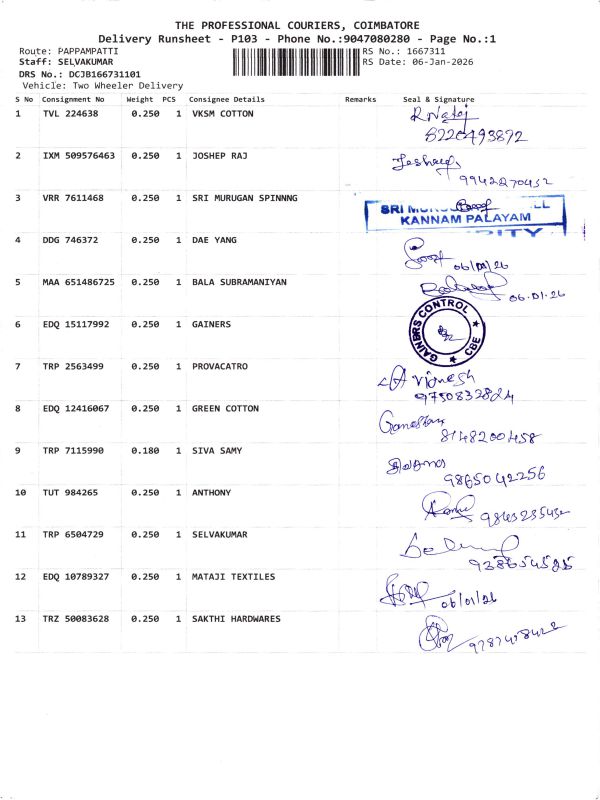 THE PROFESSIONAL COURIERS, COIMBATORE
Delivery Runsheet - P103 - Phone No.:9047080280 - Page No.:1
Route: PAPPAMPATTI RS No.: 1667311
Staff: SELVAKUMAR RS Date: 06-Jan-2026
DRS No.: DCJB166731101
Vehicle: Two Wheeler Delivery
S No Consignment No Weight PCS Consignee Details Remarks Seal & Signature
1 TVL 224638 0.250 1 VKSM COTTON
8220493892
2 IXM 509576463 0.250 1 JOSHEP RAJ
9942270452
3 VRR 7611468 0.250 1 SRI MURUGAN SPINNNG SRI
KANNAM PALAYAM
4 DDG 746372 0.250 1 DAE YANG
06/01/26
5 MAA 651486725 0.250 1 BALA SUBRAMANIYAN
06.01.26
6 EDQ 15117992 0.250 1 GAINERS GAINERS CONTROL CBE
7 TRP 2563499 0.250 1 PROVACATRO Vignesh
9750832824
8 EDQ 12416067 0.250 1 GREEN COTTON
8148200458
9 TRP 7115990 0.180 1 SIVA SAMY
9865042256
10 TUT 984265 0.250 1 ANTHONY
9843235432
11 TRP 6504729 0.250 1 SELVAKUMAR
12 EDQ 10789327 0.250 1 MATAJI TEXTILES
06/01/26
13 TRZ 50083628 0.250 1 SAKTHI HARDWARES